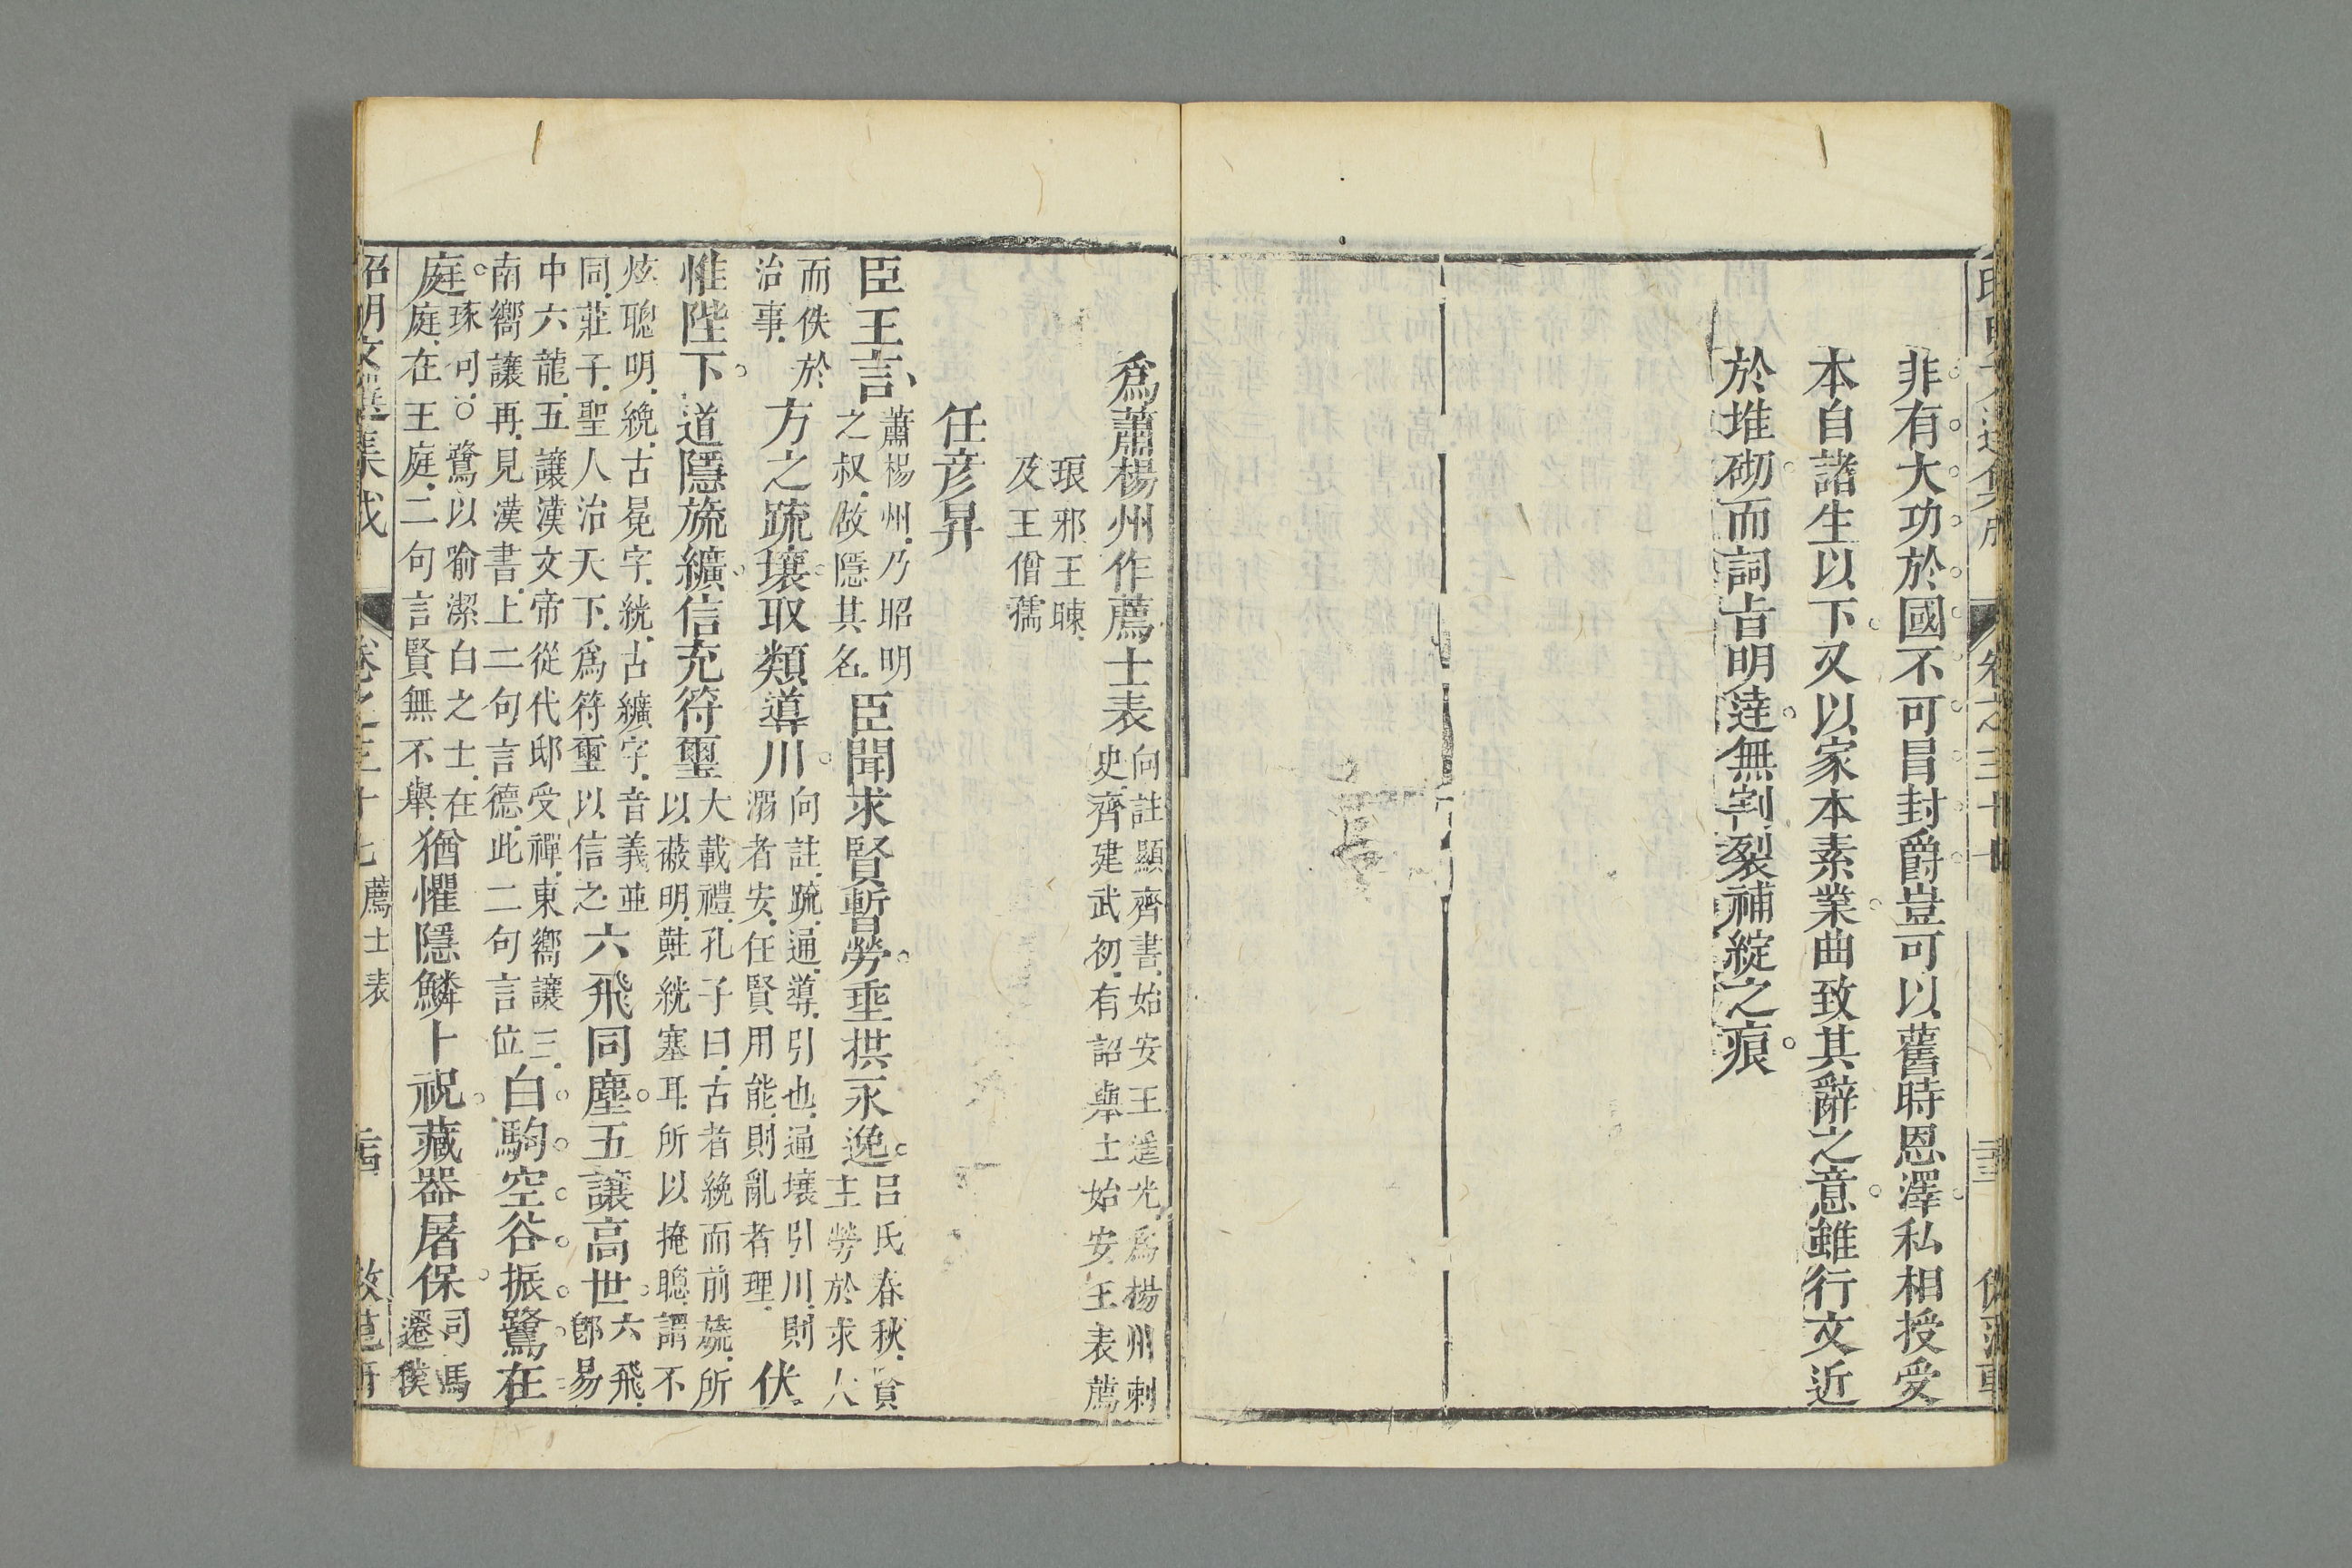 非有大功於國不可昌封爵豈可以舊時恩澤私相授受
本自諸生以下又以家本素業曲致其辭之意雖行文近
於堆砌而詞旨明達無割裂補綻之痕
爲蕭楊州作薦士表
向註顯齊書始安王遥光爲楊州刺
史齊建武初有詔舉士始安王表薦
琅邪王暕
及王僧孺
任彥昇
臣王言
蕭楊州乃昭明
之叔故隱其名
臣聞求賢暫勞垂拱永逸
呂氏春秋賢
主勞於求人
而佚於
治事
方之疏壤取類導川
向註疏通導引也通壤引川則
溺者安任賢用能則亂者理
伏
惟陛下道隱旒纊信充符璽
大載禮孔子曰古者絻而前旒所
以蔽明黈絖塞耳所以掩聰謂不
炫聰明絻古冕字絖古纊字音義並
同莊子聖人治天下爲符璽以信之
六飛同塵五讓高世
六飛
卽易
中六龍五讓漢文帝從代邸受禪東嚮讓三
南嚮讓再見漢書上二句言德此二句言位
白駒空谷振鷺在
庭
琢句○鷺以喻潔白之士在
庭在王庭二句言賢無不舉
猶懼隱鱗卜祝藏器屠保
司馬
遷僕
昭明文選集成
卷之三十七
薦士表